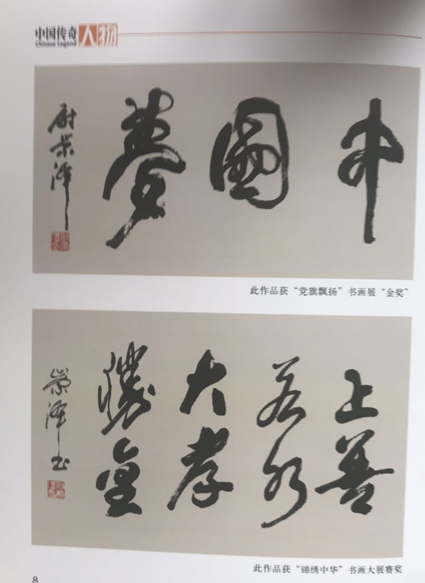 中国传奇人物
Chinese Legend
中國夢
尉崇泽
此作品获“党旗飘扬”书画展“金奖”
上善
若水
大孝
勝金
崇泽书
此作品获“锦绣中华”书画大展赛奖
8